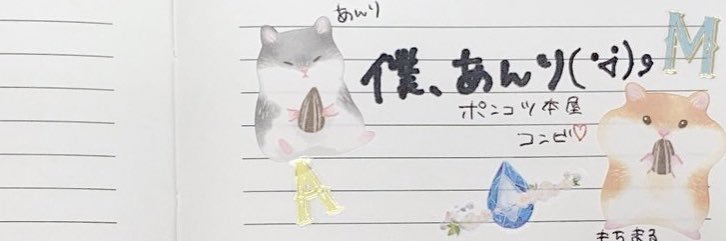 あんり
M
僕、あんり
ポンコツ本屋
コンビ♡
A
もちまる